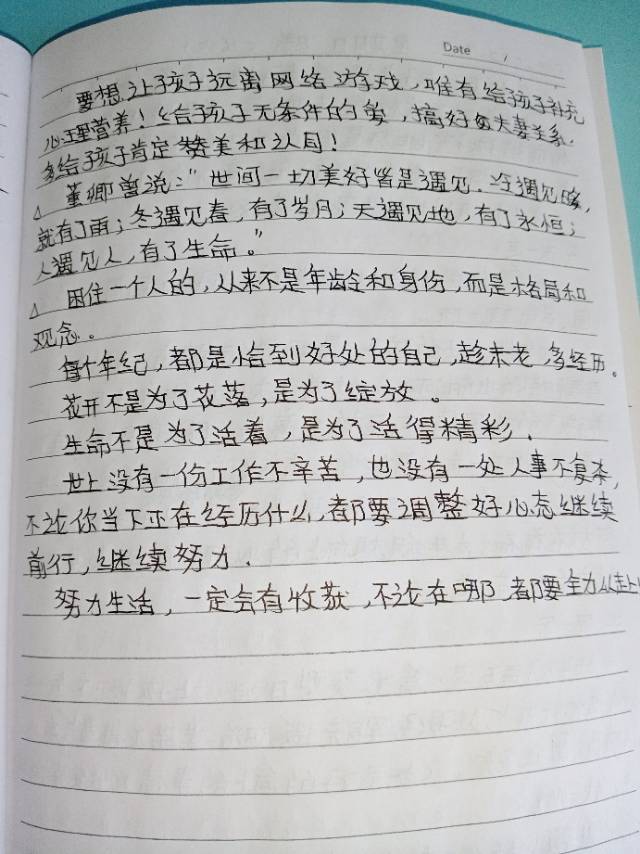 Date /
要想让孩子远离网络游戏，唯有给孩子补充
心理营养！给孩子无条件的爱，搞好夫妻关系.
多给孩子肯定赞美和认同！
△ 董卿曾说："世间一切美好皆是遇见.冷遇见暖，
就有了雨；冬遇见春，有了岁月；天遇见地，有了永恒；
人遇见人，有了生命。"
△ 困住一个人的，从来不是年龄和身份，而是格局和
观念。
每个年纪，都是恰到好处的自己，趁未老，多经历。
花开不是为了花落，是为了绽放。
生命不是为了活着，是为了活得精彩.
世上没有一份工作不辛苦，也没有一处人事不复杂，
不论你当下正在经历什么，都要调整好心态继续
前行，继续努力.
努力生活，一定会有收获，不论在哪，都要全力以赴